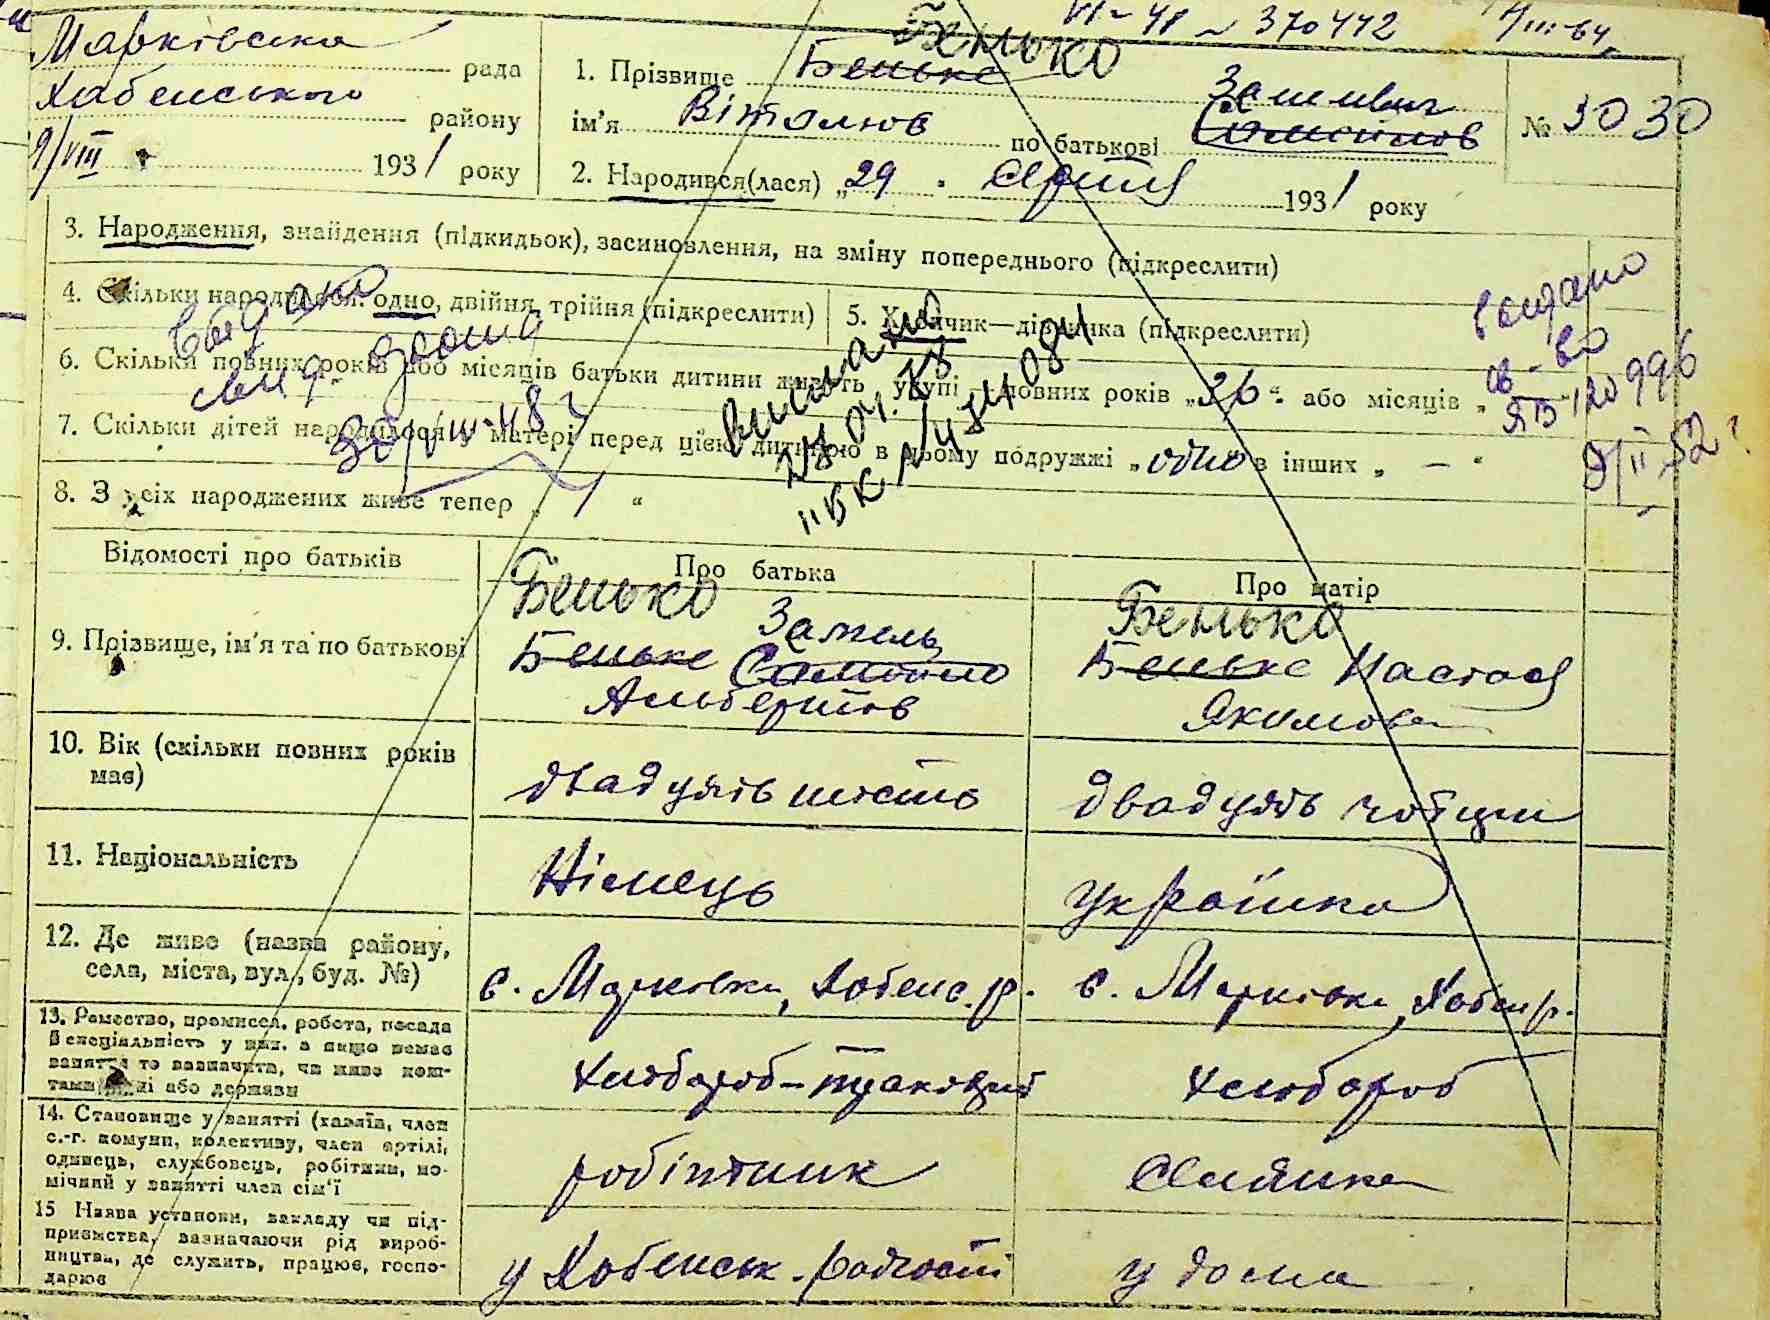 VI-УІ № 370442
Марківська рада
Хабенського району
9/VIII 1931 року
Бенько
1. Прізвище Беньке
ім'я Віталюс по батькові
2. Народився(лася) „29" 1931 року
№ 3030
3. Народження, знайдення (підкидьок), засиновлення, на зміну попереднього (підкреслити)
4. Скільки народилося: одно, двійня, трійня (підкреслити)
5. Хлопчик—дівчинка (підкреслити)
6. Скільки повних років або місяців батьки дитини живуть укупі — повних років „2б" або місяців „
7. Скільки дітей народилося у матері перед цією дитиною в цьому подружжі „одно" в інших „ — "
8. З усіх народжених живе тепер „ 1 "
видано
св-во
ЯБ 120996
9/II 52 г
Відомості про батьків
Про батька
Про матір
9. Прізвище, ім'я та по батькові
Бенько
Замель
Беньке
Альбертов
Бенько
Беньке Настася
Якимовна
10. Вік (скільки повних років має)
двадцять шість
двадцять чотири
11. Національність
Німець
Українка
12. Де живе (назва району,
села, міста, вул., буд. №)
с. Марківка, Хабенс. р.
с. Марківка, Хабен р.
13. Ремество, промисел, робота, посада
й спеціяльність у них, а якщо немає
заняття то зазначити, чи живе кош-
тами рідні або держави
Хлібороб-
Хлібороб
14. Становище у занятті (хазяїн, член
с.-г. комуни, колективу, член артілі,
одинець, службовець, робітник, по-
мічний у занятті член сім'ї
робітник
Селянка
15 Назва установи, закладу чи під-
приємства, зазначаючи рід вироб-
ництва, де служить, працює, госпо-
дарює
у Хабенськ. радгоспі
у дома